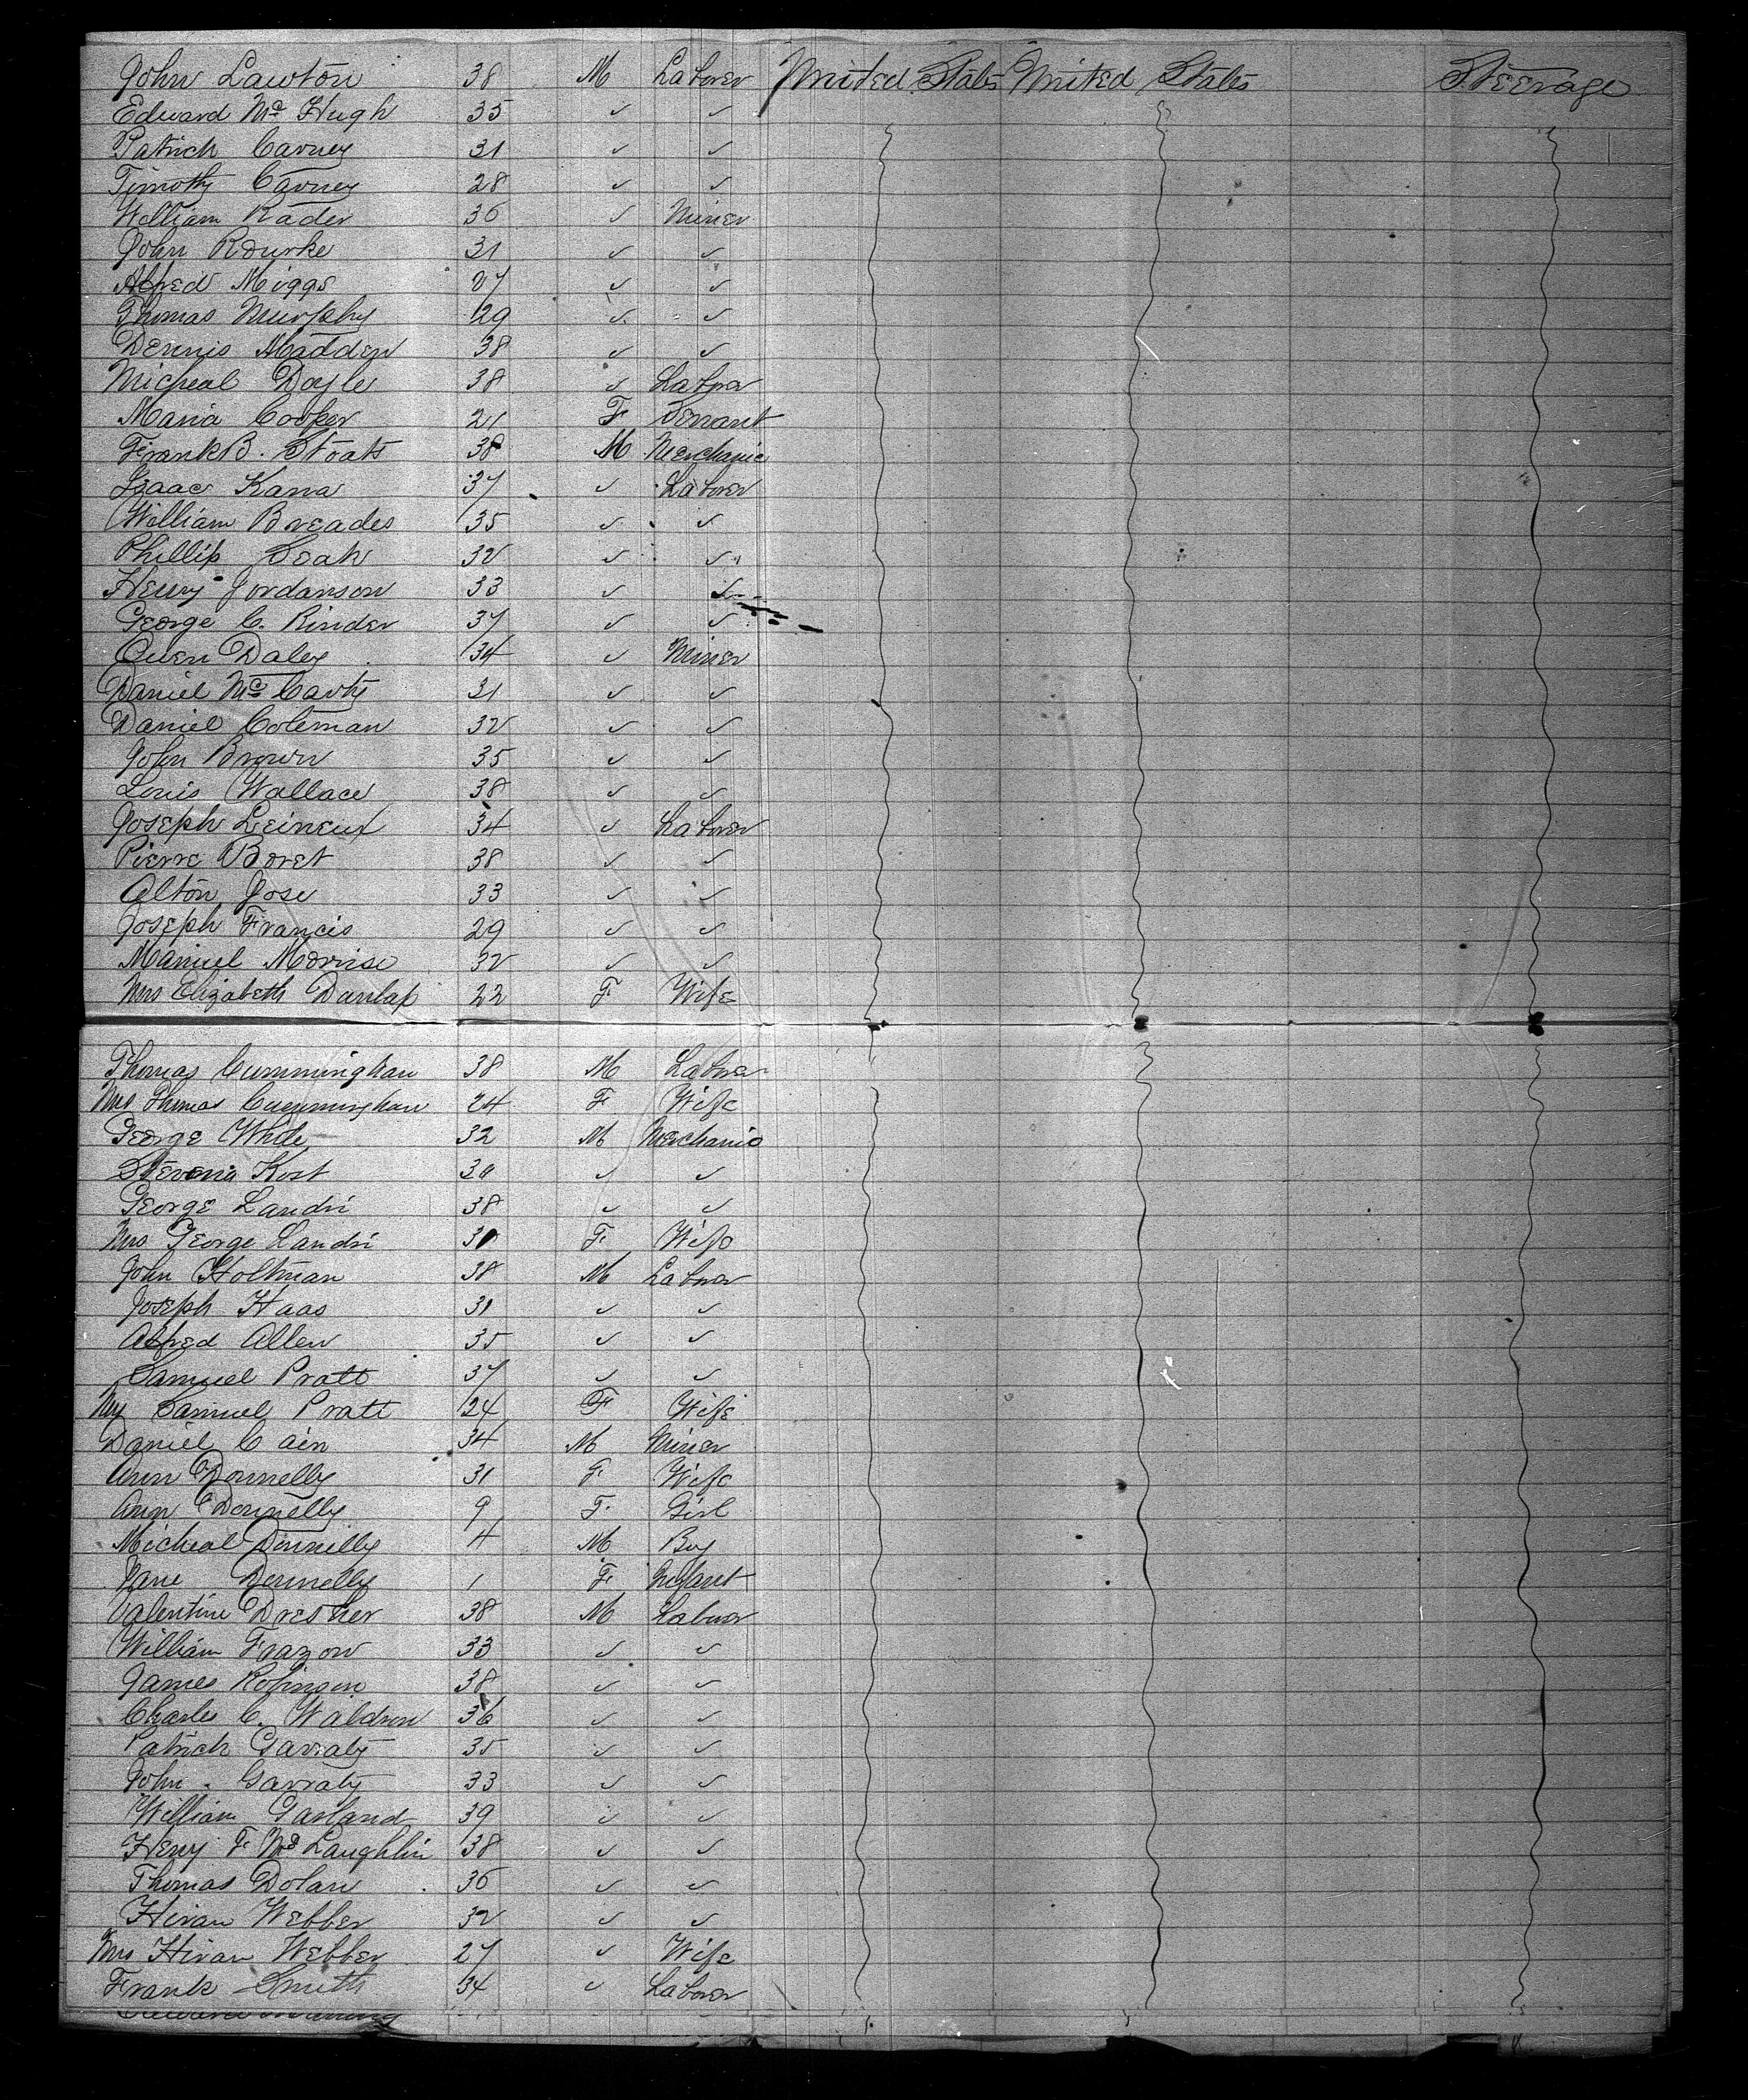 John Lawton 38 M Laborer United States United States Steerage
Edward Mc Hugh 35 ✓ ✓
Patrick Carney 31 ✓ ✓
Timothy Carney 28 ✓ ✓
William Rader 36 ✓ Miner
John Rourke 31 ✓ ✓
Alfred Miggs 27 ✓ ✓
Thomas Murphy 29 ✓ ✓
Dennis Madden 38 ✓ ✓
Micheal Doyle 38 ✓ Laborer
Maria Cooper 21 F Servant
Frank B. Stoats 38 M Merchanic
Isaac Kana 37 ✓ Laborer
William Breades 35 ✓ ✓
Phillip Soak 32 ✓ ✓
Henry Jordanson 33 ✓ ✓
George C. Rinder 37 ✓ ✓
Owen Daley 34 ✓ Miner
Daniel Mc Carty 31 ✓ ✓
Daniel Coleman 32 ✓ ✓
John Brown 35 ✓ ✓
Louis Wallace 38 ✓ ✓
Joseph Leineux 34 ✓ Laborer
Pierre Boret 38 ✓ ✓
Alton Jose 33 ✓ ✓
Joseph Francis 29 ✓ ✓
Manuel Morrise 32 ✓ ✓
Mrs Elizabeth Dunlap 22 F Wife
Thomas Cumminghan 38 M Laborer
Mrs Thomas Cumminghan 24 F Wife
George White 32 M Merchanic
Kost ✓ ✓
George Landri 38 ✓ ✓
Mrs George Landri F Wife
John Holtman 38 M Laborer
Joseph Haas 31 ✓ ✓
Alfred Allen 35 ✓ ✓
Samuel Pratt 37 ✓ ✓
Mrs Samuel Pratt 24 F Wife
Daniel Cain 34 M Miner
Ann Donnelly 31 F Wife
Ann Donnelly 9 F Girl
Micheal Donnelly 4 M Boy
Jane Donnelly 1 F Infant
Valentine Dresher 38 M Laborer
William Frazon 33 ✓ ✓
James Robinson 38 ✓ ✓
Charles C. Waldron 36 ✓ ✓
Patrick Garraty 35 ✓ ✓
John Garraty 33 ✓ ✓
William Garland 39 ✓ ✓
Henry F Mc Laughlin 38 ✓ ✓
Thomas Dolan 36 ✓ ✓
Hiram Webber 32 ✓ ✓
Mrs Hiram Webber 27 ✓ Wife
Frank Smith 34 ✓ Laborer